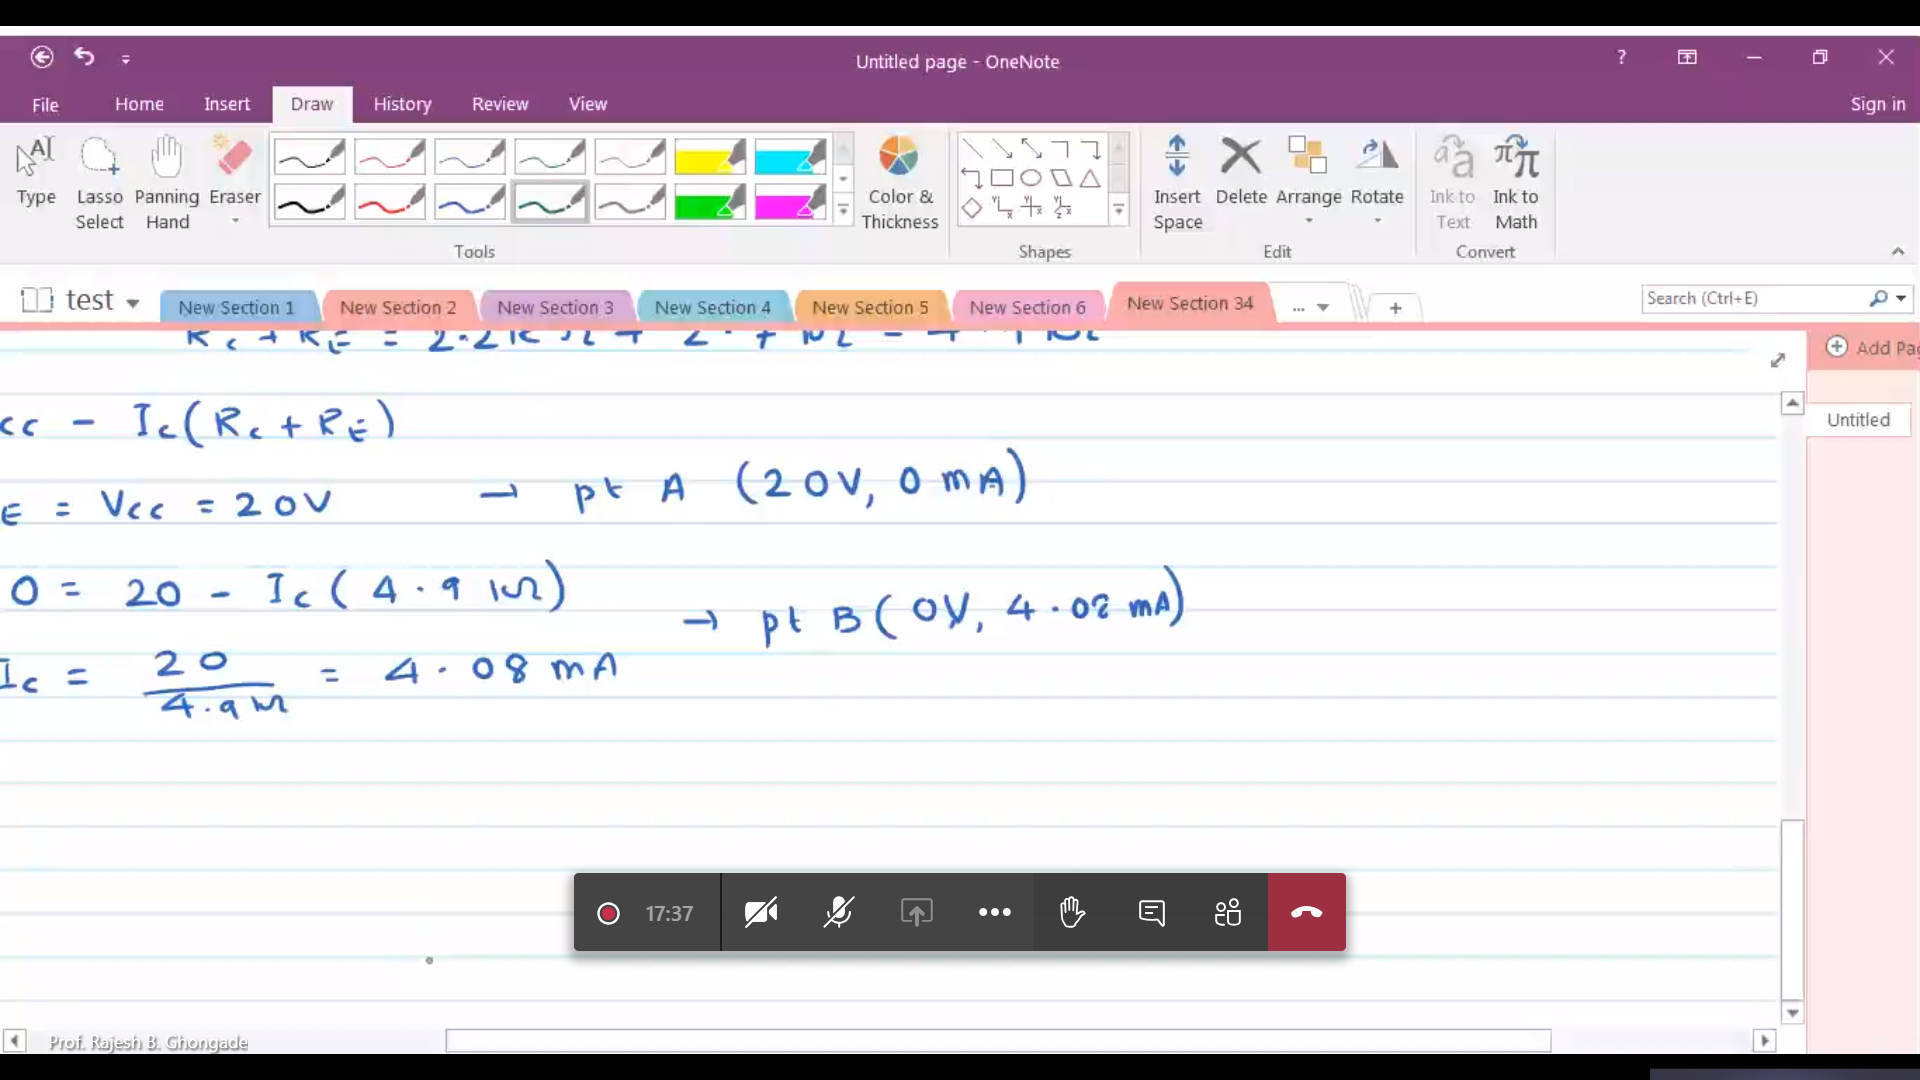 Untitled page - OneNote
?
File Home Insert Draw History Review View
Sign in
Type
Lasso Select
Panning Hand
Eraser
Color & Thickness
Insert Space
Delete
Arrange
Rotate
Ink to Text
Ink to Math
Tools Shapes Edit Convert
test
New Section 1 New Section 2 New Section 3 New Section 4 New Section 5 New Section 6 New Section 34 ... +
Search (Ctrl+E)
Add Pag
Untitled
cc - Ic(Rc + RE)
E = Vcc = 20V → pt A (20V, 0 mA)
0 = 20 - Ic(4.9 kΩ)
→ pt B(0V, 4.08 mA)
Ic = 20 / 4.9 kΩ = 4.08 mA
17:37
Prof. Rajesh B. Ghongade